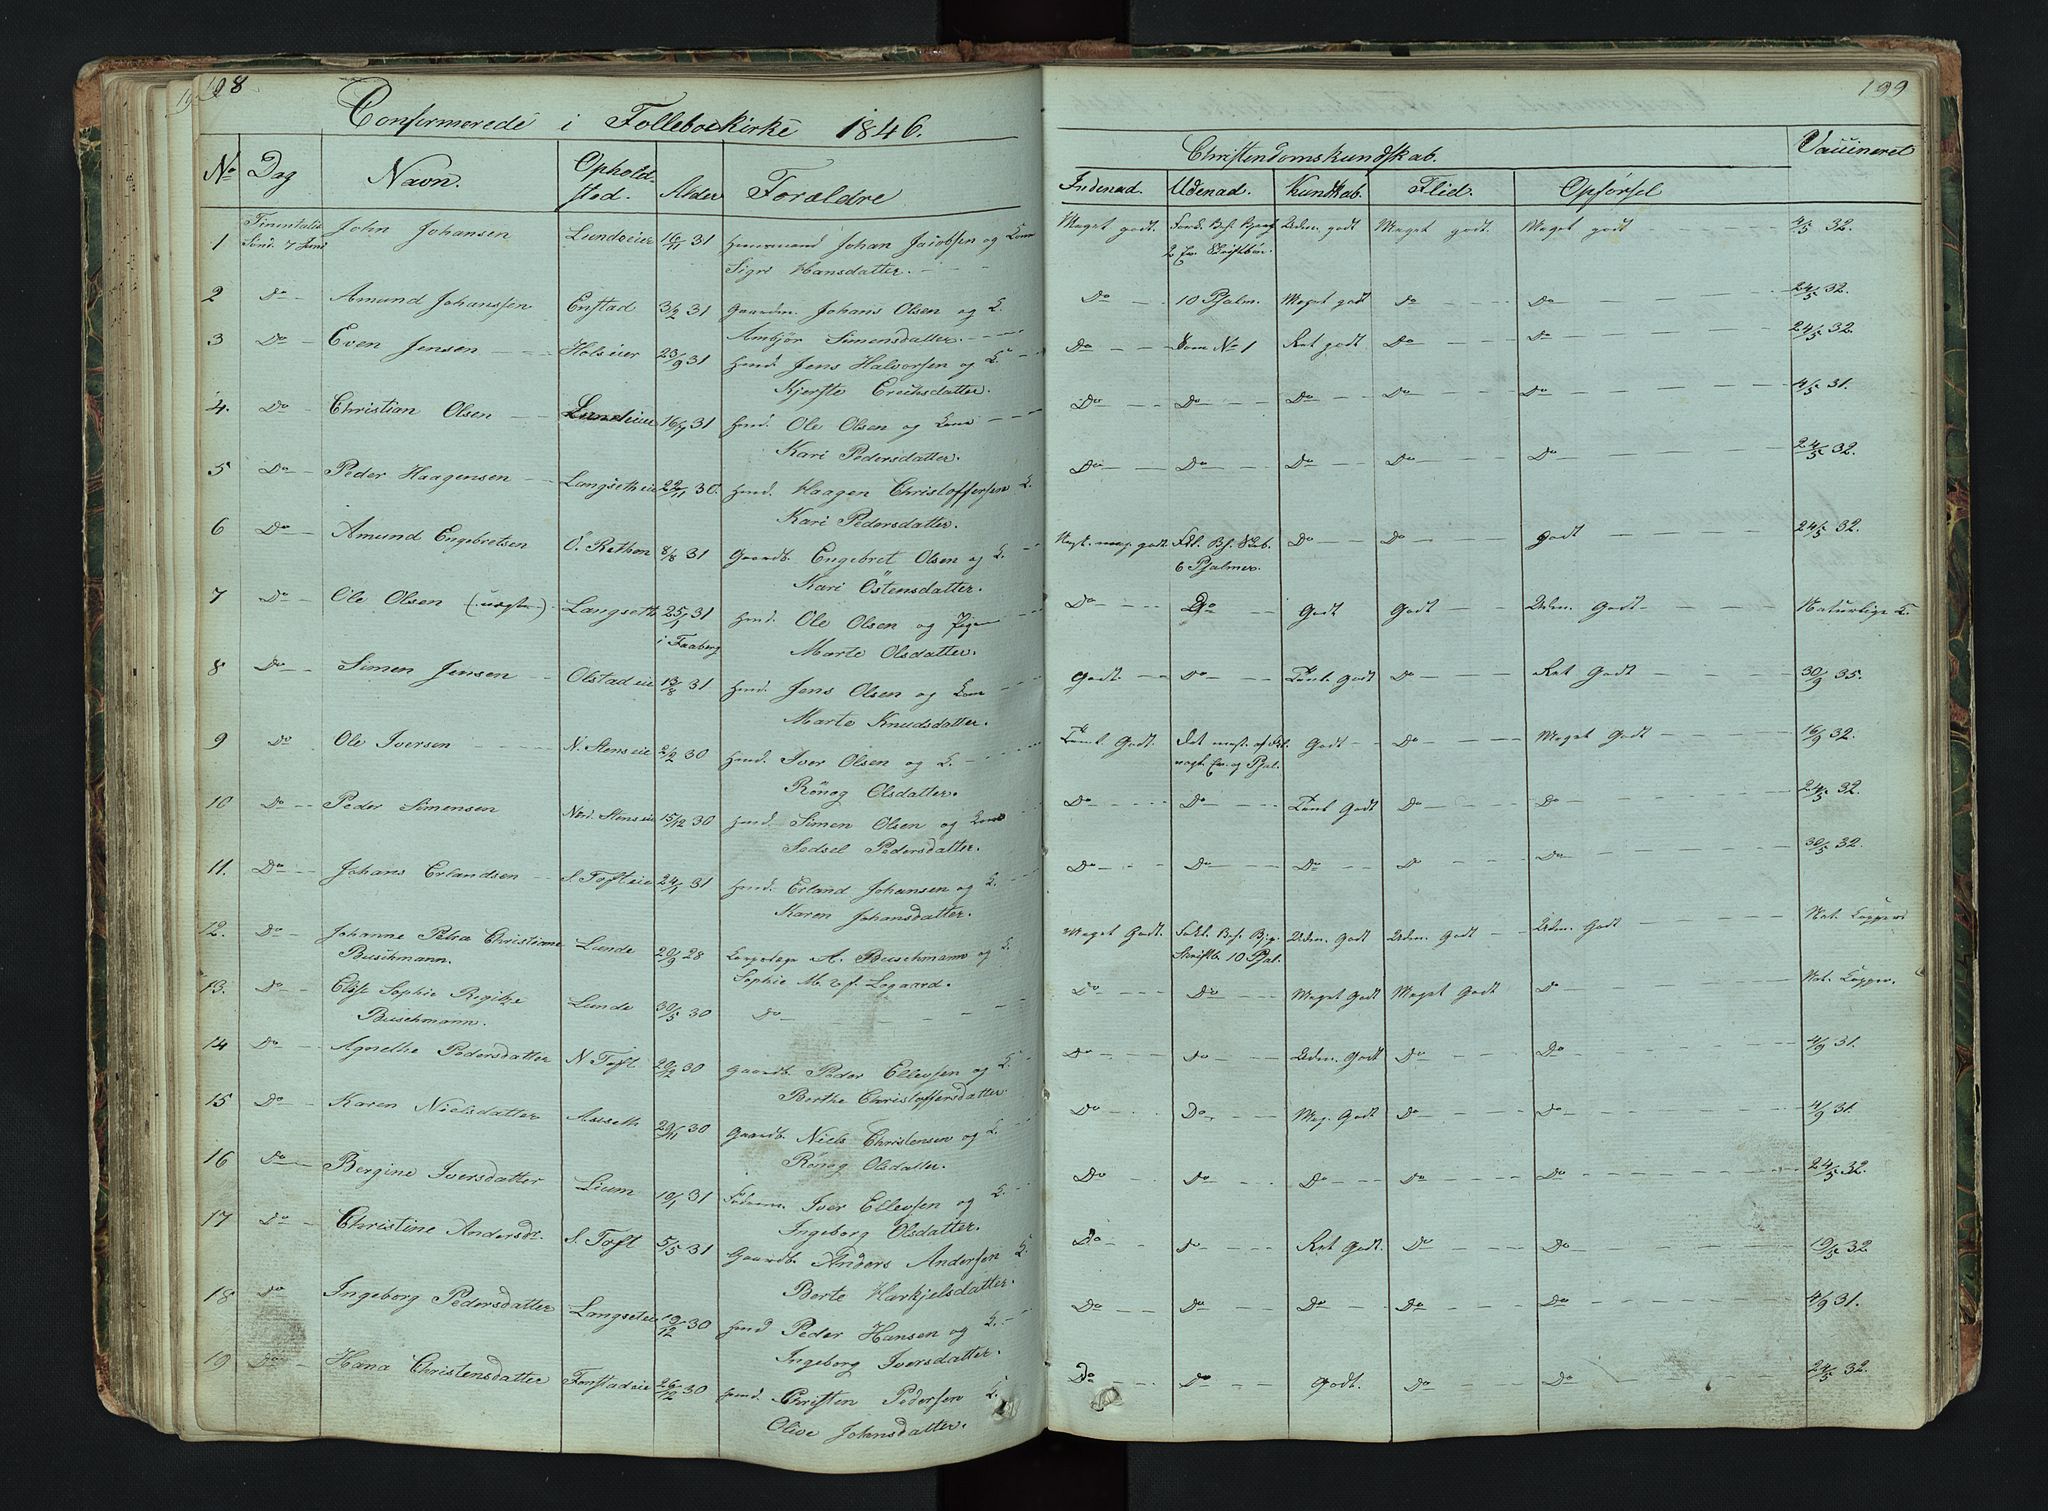 198
Confirmerede i Folleboekirke 1846.
No Dag Navn. Opholdsted. Alder Forældre
1 Sönd. 7 Juni John Johansen Lundseier 16/11 31 Huusmand Johan Jacobsen og Kone
Sigri Hansdatter.
2 Do Amund Johanssen Enstad 3/2 31 Gaardm. Johans Olsen og K.
Ambjör Simensdatter.
3 Do Even Jensen Holseier 23/9 31 Huusd. Jens Halvorsen og K.
Kjerste Erichsdatter.
4. Do Christian Olsen Lundeeier 16/7 31 Huusd. Ole Olsen og Kone
Kari Pedersdatter.
5 Do Peder Haagensen Langsetheie 22/11 30. Huusd. Haagen Christoffersen K.
Kari Pedersdatter.
6 Do Amund Engebretsen Ö. Rethen 8/8 31 Gaardb. Engebret Olsen og K.
Kari Östensdatter.
7 Do Ole Olsen (uægte) Langseth 25/1 31 Huusd. Ole Olsen og Pigen
i Faaberg Marte Olsdatter.
8 Do Simen Jensen Olstadeie 13/8 31 Huusd. Jens Olsen og Kone
Marte Knudsdatter.
9 Do Ole Iversen N. Stenseie 2/2 30 Huusd. Iver Olsen og K.
Rönog Olsdatter.
10 Do Peder Simensen Nord. Stenseie 15/12 30 Huusd. Simen Olsen og Kone
Sedsel Pedersdatter.
11. Do Johans Erlandsen S. Tofteie 24/1 31 Huusd. Erland Johansen og K.
Karen Johansdatter.
12. Do Johanne Petra Christiane Lunde 20/9 28 A. Buschmann og K.
Buschmann. Sophie M. f. Logaard.
13. Do Elise Sophie Regitze Lunde 30/5 30 Do
Buschmann.
14 Do Agnethe Pedersdatter N Toft 20/2 30 Gaardb. Peder Ellevsen og K.
Berthe Christoffersdatter
15 Do Karen Nielsdatter Aaseth 29/11 30 Gaardb. Niels Christensen og K.
Rönog Olsdatter.
16 Do Bergine Iversdatter Lium 10/1 31 Iver Ellevsen og K.
Ingeborg Olsdatter.
17 Do Christine Andersdr. S. Toft 5/5 31 Gaardb. Anders Andersen K.
Berte Harkjelsdatter.
18 Do Ingeborg Pedersdatter Langseteie 19/12 30 Huusd Peder Hansen og K.
Ingeborg Iversdatter.
19 Do Hana Christensdatter Forstadeie 26/12 30 Huusd. Christen Pedersen K.
Olive Johansdatter.
199
Christendomskundskab. Vaccineret
Indenad. Udenad. Kundskab. Flid. Opförsel
Meget godt. Udm. godt Meget godt. Meget godt 4/5 32.
2 Ev. Skriftbön.
Do 10 Psalm. Meget godt Do Do 24/5 32.
Do Som No 1 Ret godt Do Do 24/5 32.
Do Do Do Do Do 4/5 31.
Do Do Do Do Do 24/5 32.
Næst. meg. godt Do Do Godt 24/5 32.
6 Psalmer.
Do Do Godt Godt Udm. Godt Naturlige K.
Godt. Do Tåmt. Godt Do Ret Godt 30/9 35.
Tåmt Godt. Det mest. af Godt Do Meget Godt 16/9 32.
nogt. Ev. og Psal.
Do Do Tåmt Godt Do Do 24/5 32.
Do Do Do Do Do 30/5 32.
Meget Godt. Udm. Godt Udm. Godt Udm. Godt Nat. Kopper
Skriftb. 10 Psal.
Do Do Meget Godt Meget Godt Do Nat. Kopper.
Do Do Udm. Godt Do Do 4/9 31.
Do Do Meg. Godt Do Do 4/9 31.
Do Do Do Do Do 24/5 32.
Do Do Ret Godt. Do Do 19/5 32
Do Do Do Do Do 4/9 31.
Do Do Godt. Do Do 24/5 32.